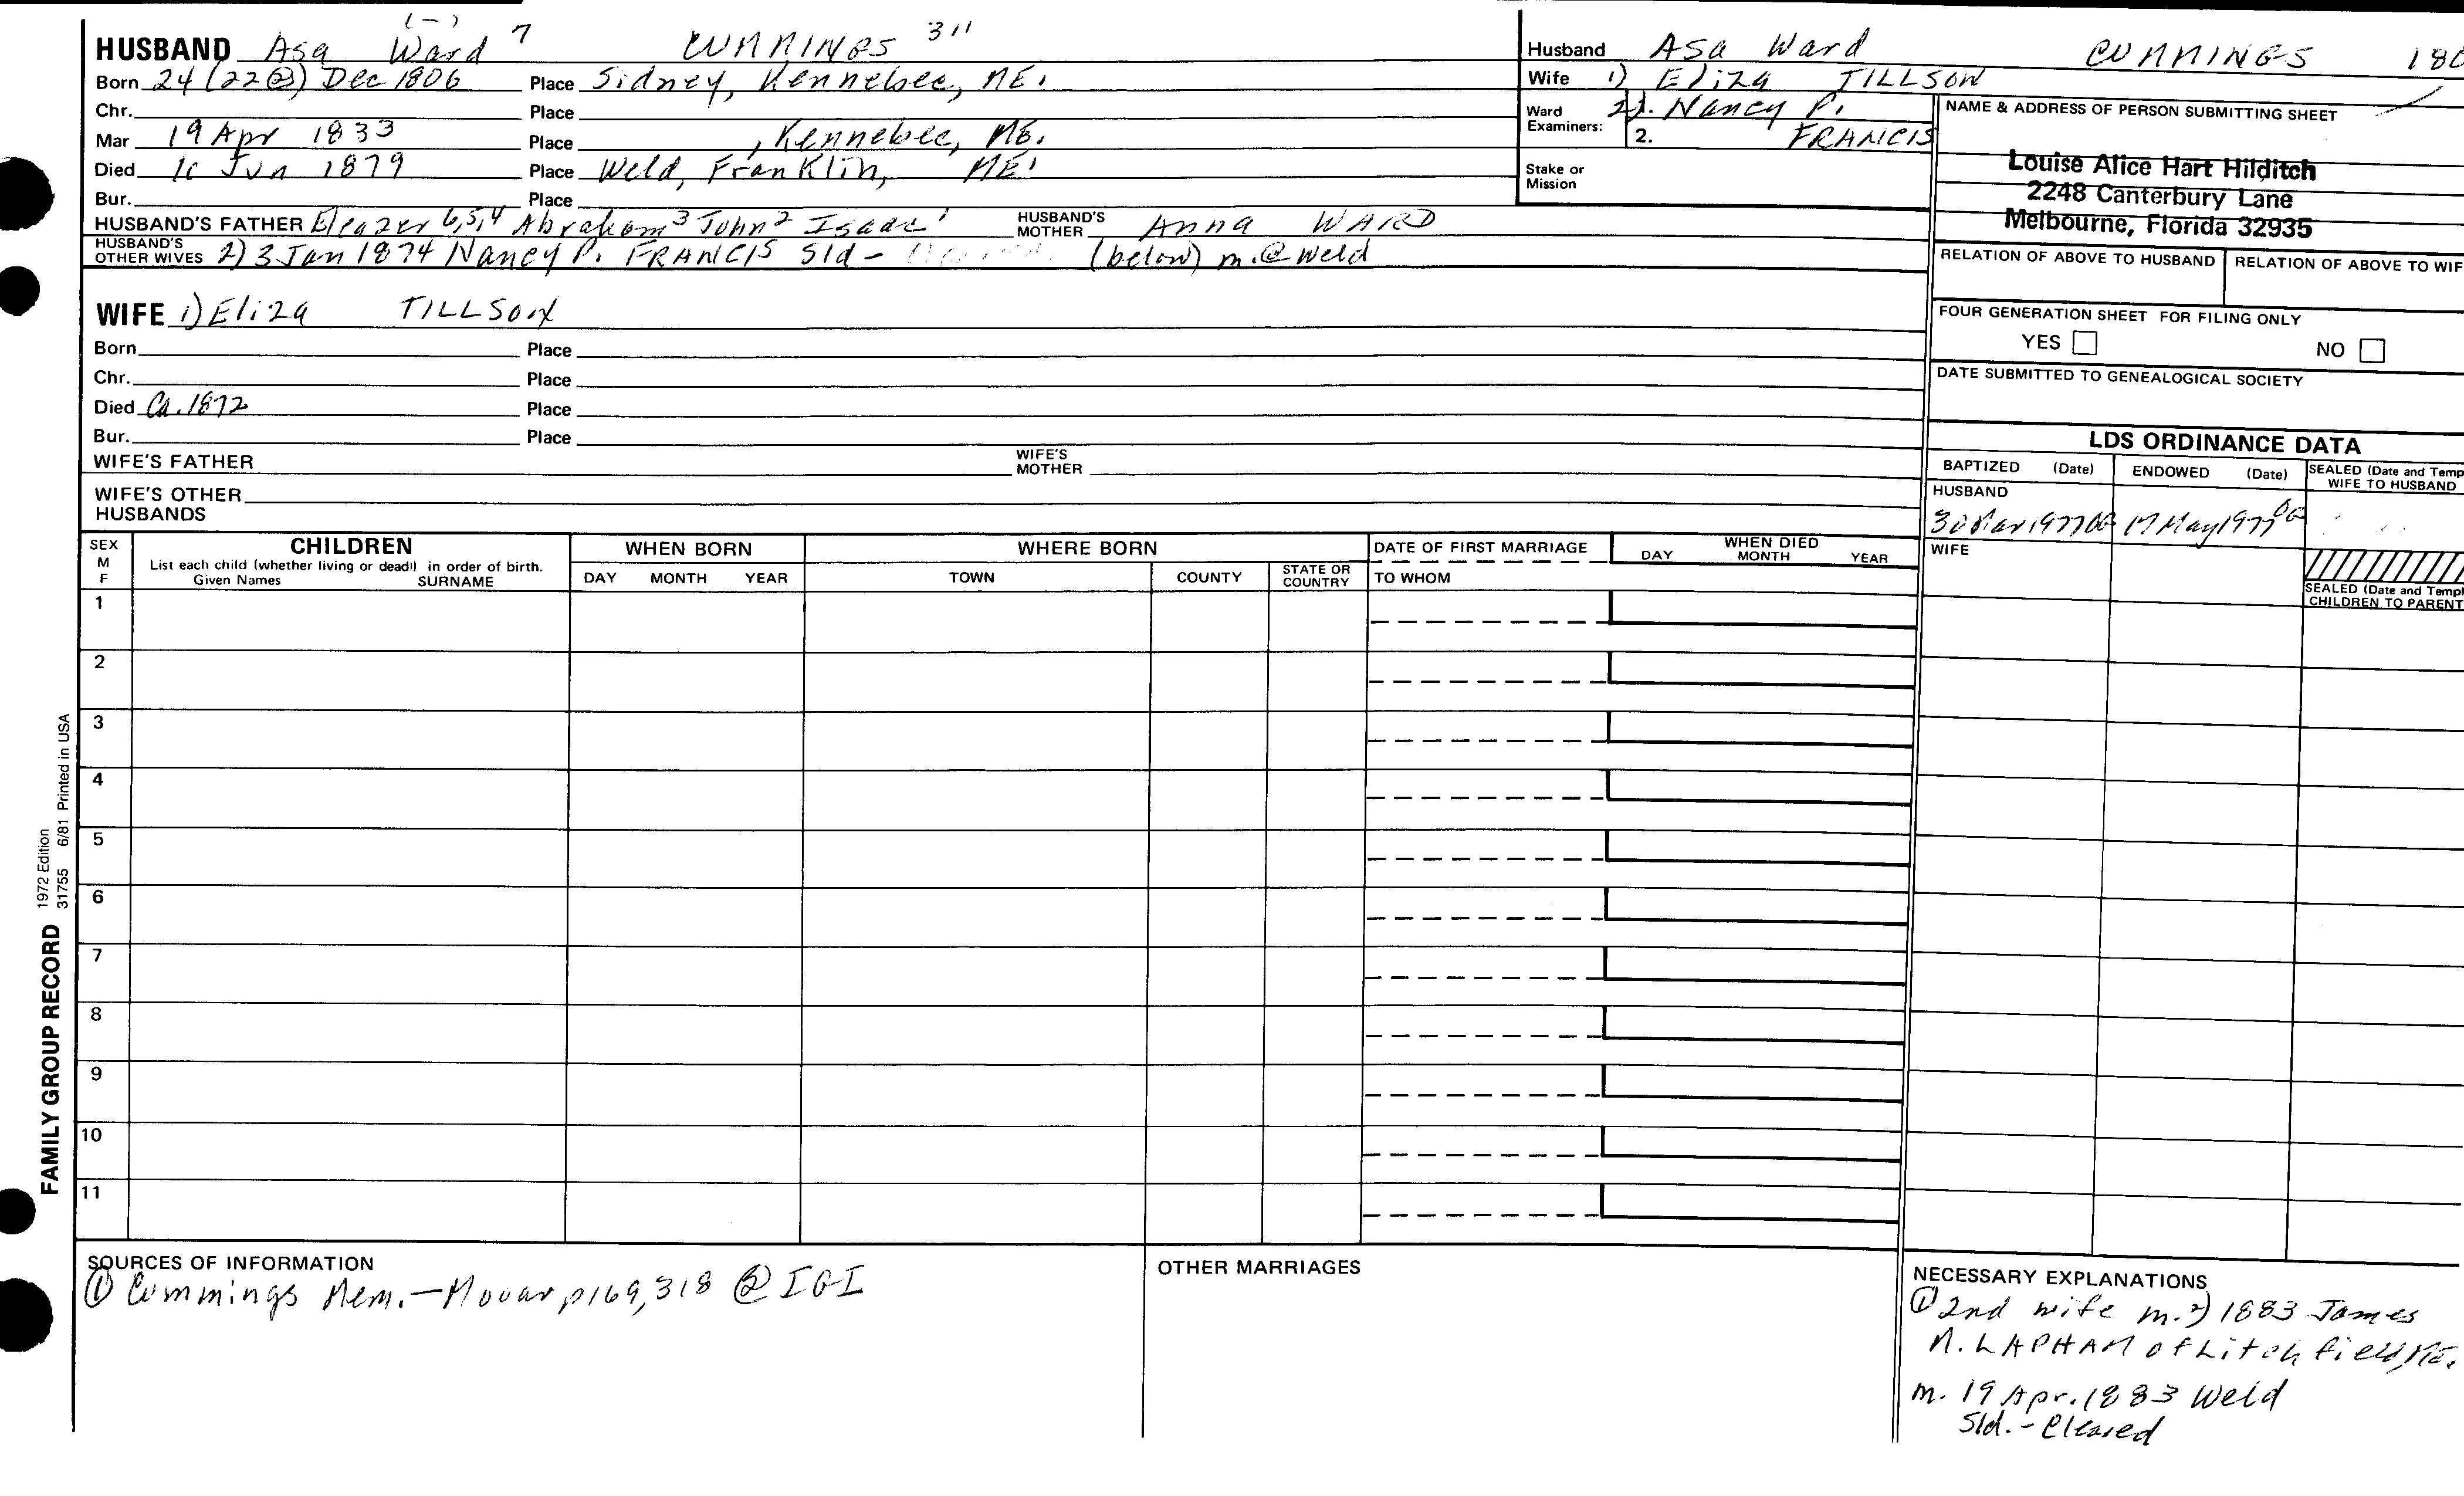 (-)
HUSBAND Asa Ward 7 CUMMINGS 311
Born 24 (22②) Dec 1806 Place Sidney, Kennebec, ME.
Chr. Place
Mar 19 Apr 1833 Place , Kennebec, ME.
Died Jun 1879 Place Weld, Franklin, ME.
Bur. Place
HUSBAND'S FATHER Eleazer 6,5,4 Abraham 3 John 2 Isaac 1 HUSBAND'S MOTHER Anna WARD
HUSBAND'S OTHER WIVES 2) 3 Jan 1874 Nancy P. FRANCIS Sld - (below) m. @ Weld
WIFE 1) Eliza TILLSON
Born Place
Chr. Place
Died Ca. 1872 Place
Bur. Place
WIFE'S FATHER WIFE'S MOTHER
WIFE'S OTHER HUSBANDS
Husband Asa Ward CUMMINGS 180
Wife 1) Eliza TILLSON
Ward Examiners: 2) 1. Nancy P.
2. FRANCIS
Stake or Mission
NAME & ADDRESS OF PERSON SUBMITTING SHEET
Louise Alice Hart Hilditch
2248 Canterbury Lane
Melbourne, Florida 32935
RELATION OF ABOVE TO HUSBAND RELATION OF ABOVE TO WIF
FOUR GENERATION SHEET FOR FILING ONLY
YES NO
DATE SUBMITTED TO GENEALOGICAL SOCIETY
LDS ORDINANCE DATA
BAPTIZED (Date) ENDOWED (Date) SEALED (Date and Temp
WIFE TO HUSBAND
HUSBAND
30 Mar 1977 OG 17 May 1977 OG
WIFE
SEALED (Date and Templ
CHILDREN TO PARENT
SEX M F CHILDREN WHEN BORN WHERE BORN DATE OF FIRST MARRIAGE WHEN DIED
List each child (whether living or dead) in order of birth.
Given Names SURNAME DAY MONTH YEAR TOWN COUNTY STATE OR COUNTRY TO WHOM DAY MONTH YEAR
1
2
3
4
5
6
7
8
9
10
11
FAMILY GROUP RECORD 1972 Edition
31755 6/81 Printed in USA
SOURCES OF INFORMATION
① Cummings Mem. - Mooar p169, 318 ② IGI
OTHER MARRIAGES
NECESSARY EXPLANATIONS
① 2nd wife m. 2) 1883 James
N. LAPHAM of Litchfield, ME.
m. 19 Apr. 1883 Weld
Sld. - Cleared